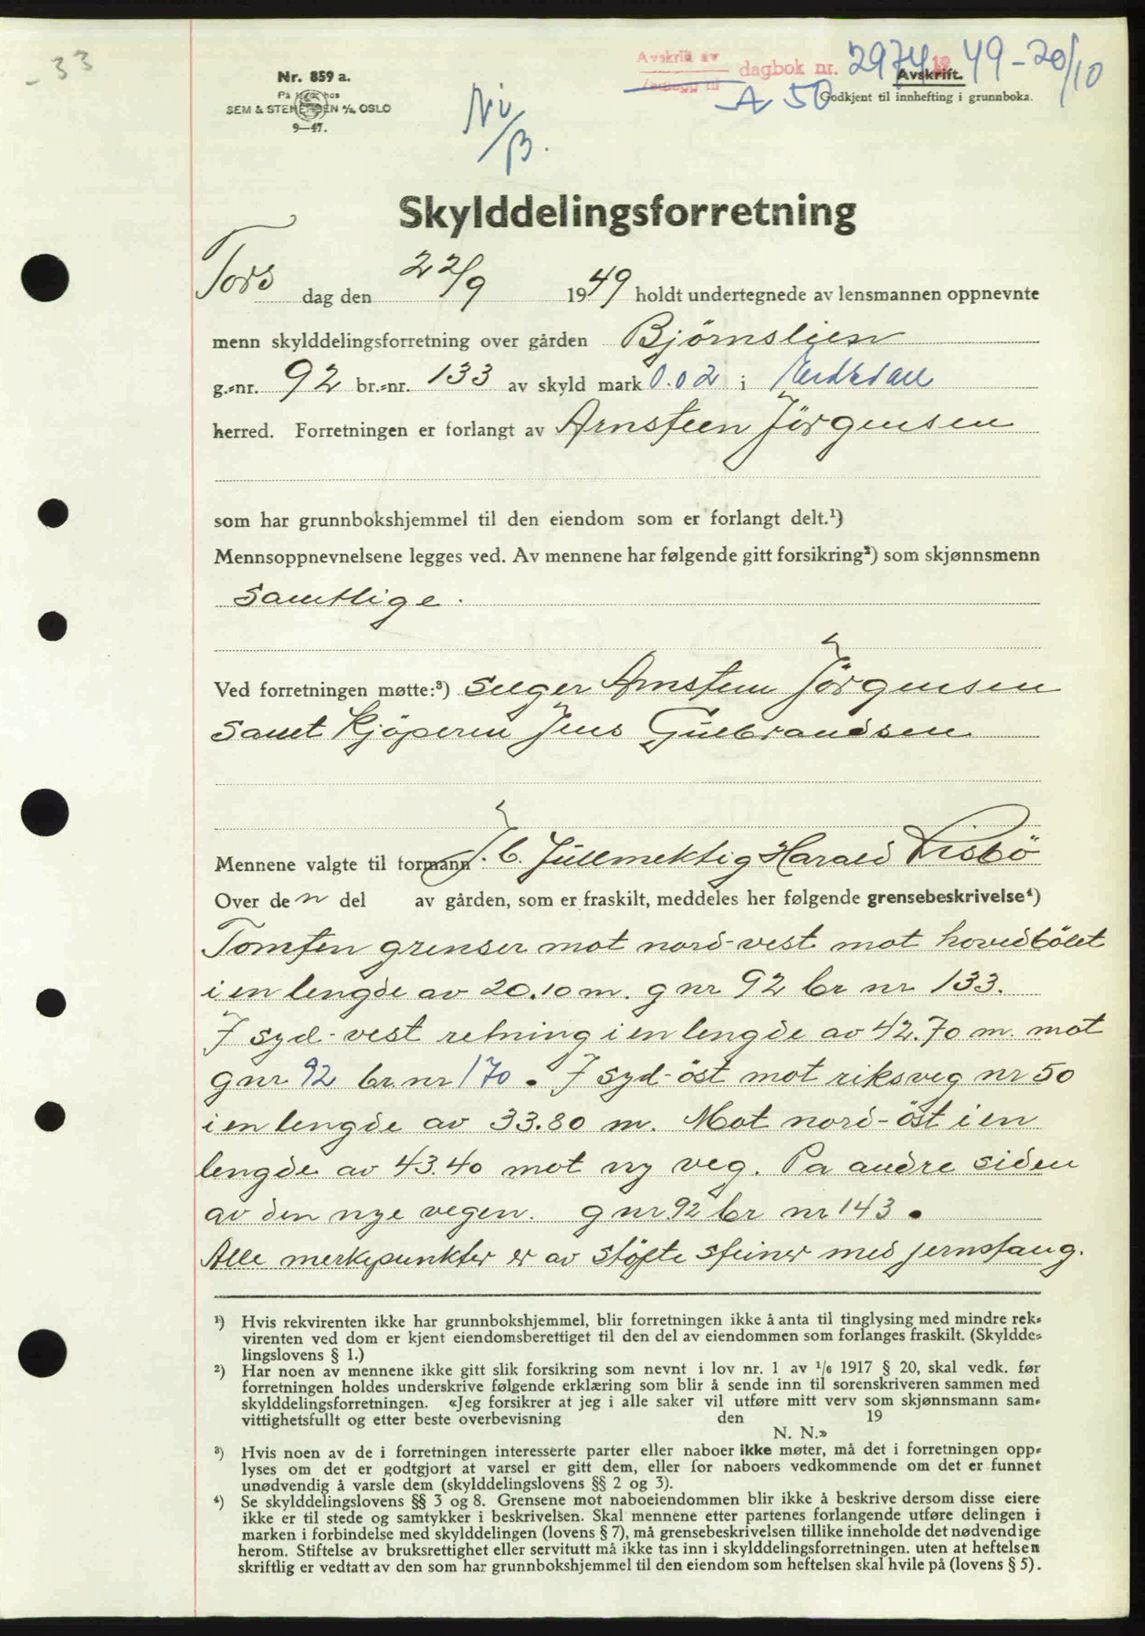 - 33
Nr. 859 a.
På lager hos
SEM & STENERSEN A/S, OSLO
9–47.
Ni/B.
Avskrift av
dagbok nr. 2974 1949 - 20/10
A 50
Avskrift.
Godkjent til innhefting i grunnboka.
Skylddelingsforretning
Tors dag den 22/9 1949 holdt undertegnede av lensmannen oppnevnte
menn skylddelingsforretning over gården Björnslien
g.-nr. 92 br.-nr. 133 av skyld mark 0.02 i
herred. Forretningen er forlangt av Arnsteen Jörgensen
som har grunnbokshjemmel til den eiendom som er forlangt delt.¹)
Mennsoppnevnelsene legges ved. Av mennene har følgende gitt forsikring²) som skjønnsmenn
Samtlige.
Ved forretningen møtte:³) Selger Arnsteen Jörgensen
samt kjöperen Jens Gulbrandsen
Mennene valgte til formann Fullmektig Harald Lisbö
Over den del av gården, som er fraskilt, meddeles her følgende grensebeskrivelse⁴)
Tomten grenser mot nord-vest mot hovedbölet
i en lengde av 20.10 m. g nr 92 br nr 133.
I syd-vest retning i en lengde av 42.70 m. mot
g nr 92 br. nr 170. I syd-öst mot riksveg nr 50
i en lengde av 33.80 m. Mot nord-öst i en
lengde av 43.40 mot ny veg. Pa andre siden
av den nye vegen. g nr. 92 br nr 143.
Alle merkepunkter er av stöpte steiner med jernstang.
¹) Hvis rekvirenten ikke har grunnbokshjemmel, blir forretningen ikke å anta til tinglysing med mindre rek-
virenten ved dom er kjent eiendomsberettiget til den del av eiendommen som forlanges fraskilt. (Skyldde-
lingslovens § 1.)
²) Har noen av mennene ikke gitt slik forsikring som nevnt i lov nr. 1 av 1/6 1917 § 20, skal vedk. før
forretningen holdes underskrive følgende erklæring som blir å sende inn til sorenskriveren sammen med
skylddelingsforretningen. «Jeg forsikrer at jeg i alle saker vil utføre mitt verv som skjønnsmann sam-
vittighetsfullt og etter beste overbevisning den 19
N. N.»
³) Hvis noen av de i forretningen interesserte parter eller naboer ikke møter, må det i forretningen opp-
lyses om det er godtgjort at varsel er gitt dem, eller for naboers vedkommende om det er funnet
unødvendig å varsle dem (skylddelingslovens §§ 2 og 3).
⁴) Se skylddelingslovens §§ 3 og 8. Grensene mot naboeiendommen blir ikke å beskrive dersom disse eiere
ikke er til stede og samtykker i beskrivelsen. Skal mennene etter partenes forlangende utføre delingen i
marken i forbindelse med skylddelingen (lovens § 7), må grensebeskrivelsen tillike inneholde det nødvendige
herom. Stiftelse av bruksrettighet eller servitutt må ikke tas inn i skylddelingsforretningen. uten at heftelsen
skriftlig er vedtatt av den som har grunnbokshjemmel til den eiendom som heftelsen skal hvile på (lovens § 5).